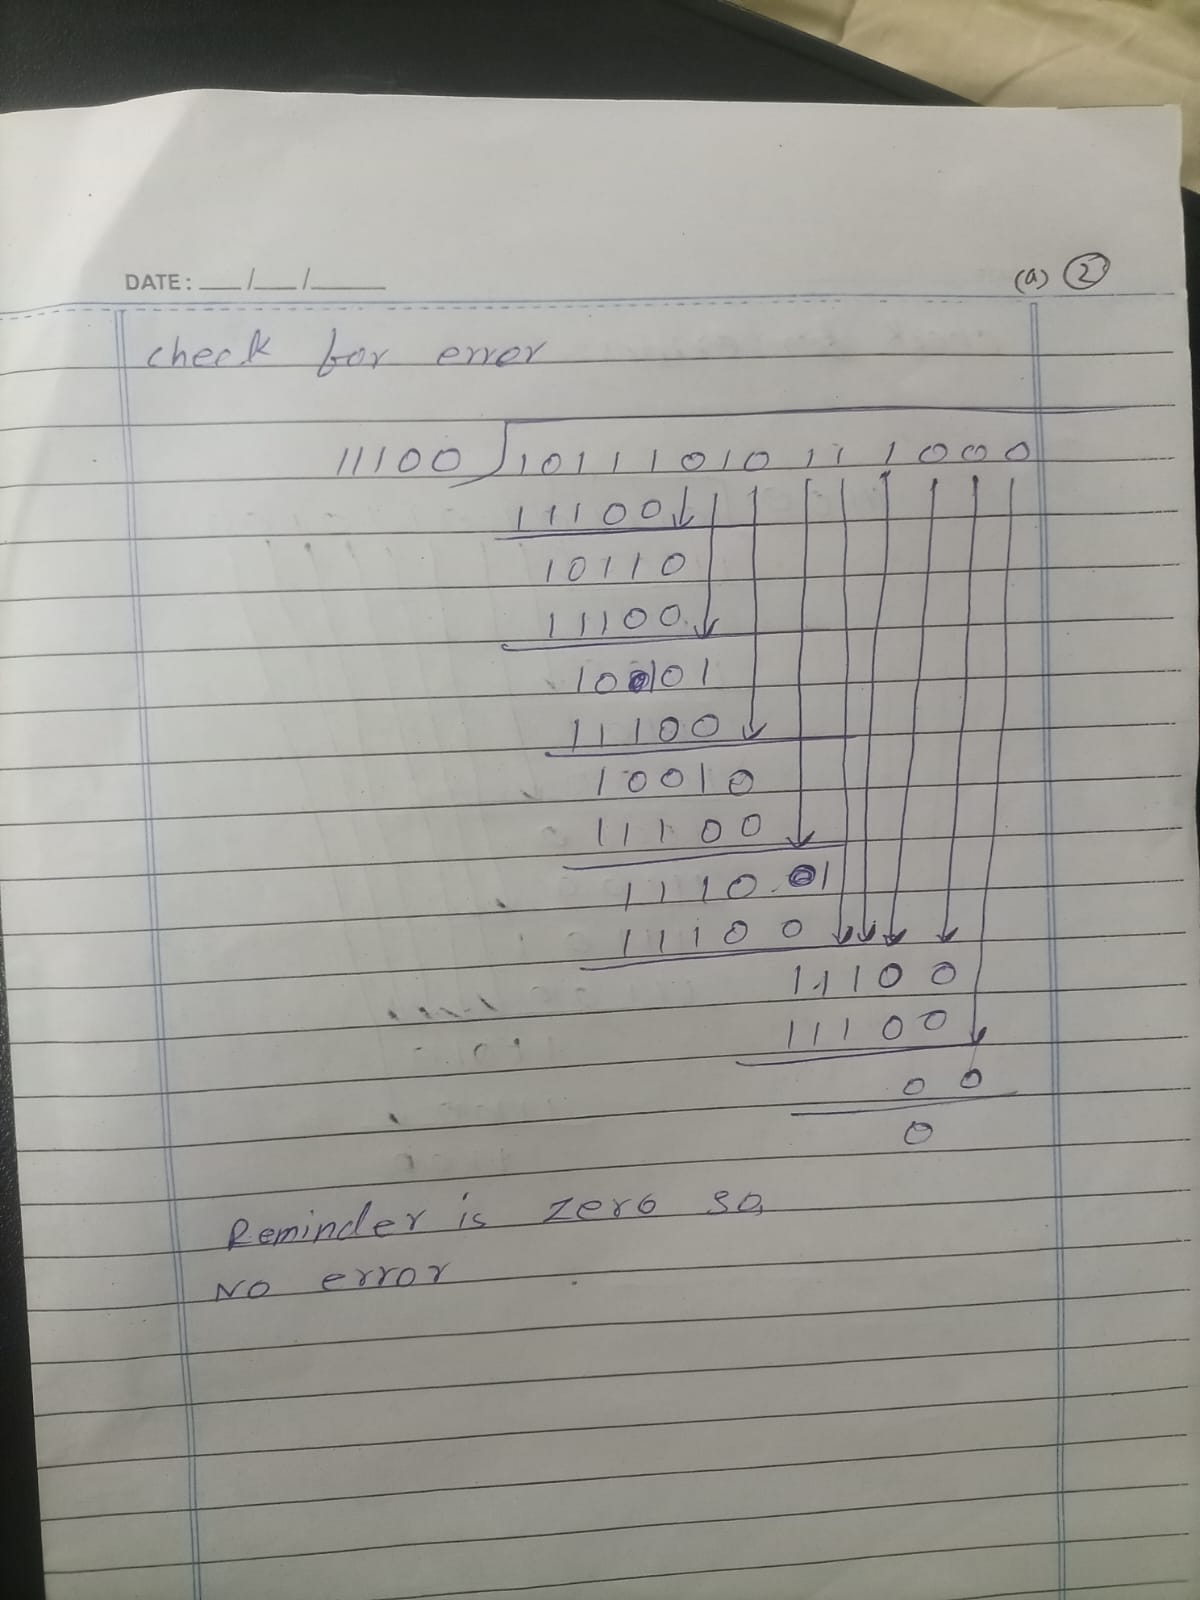 DATE: __/__/____
(a) 2
check for error
11100 10111010111000
11100
10110
11100
10101
11100
10010
11100
11101
11100
11100
11100
00
0
Reminder is zero so,
No error